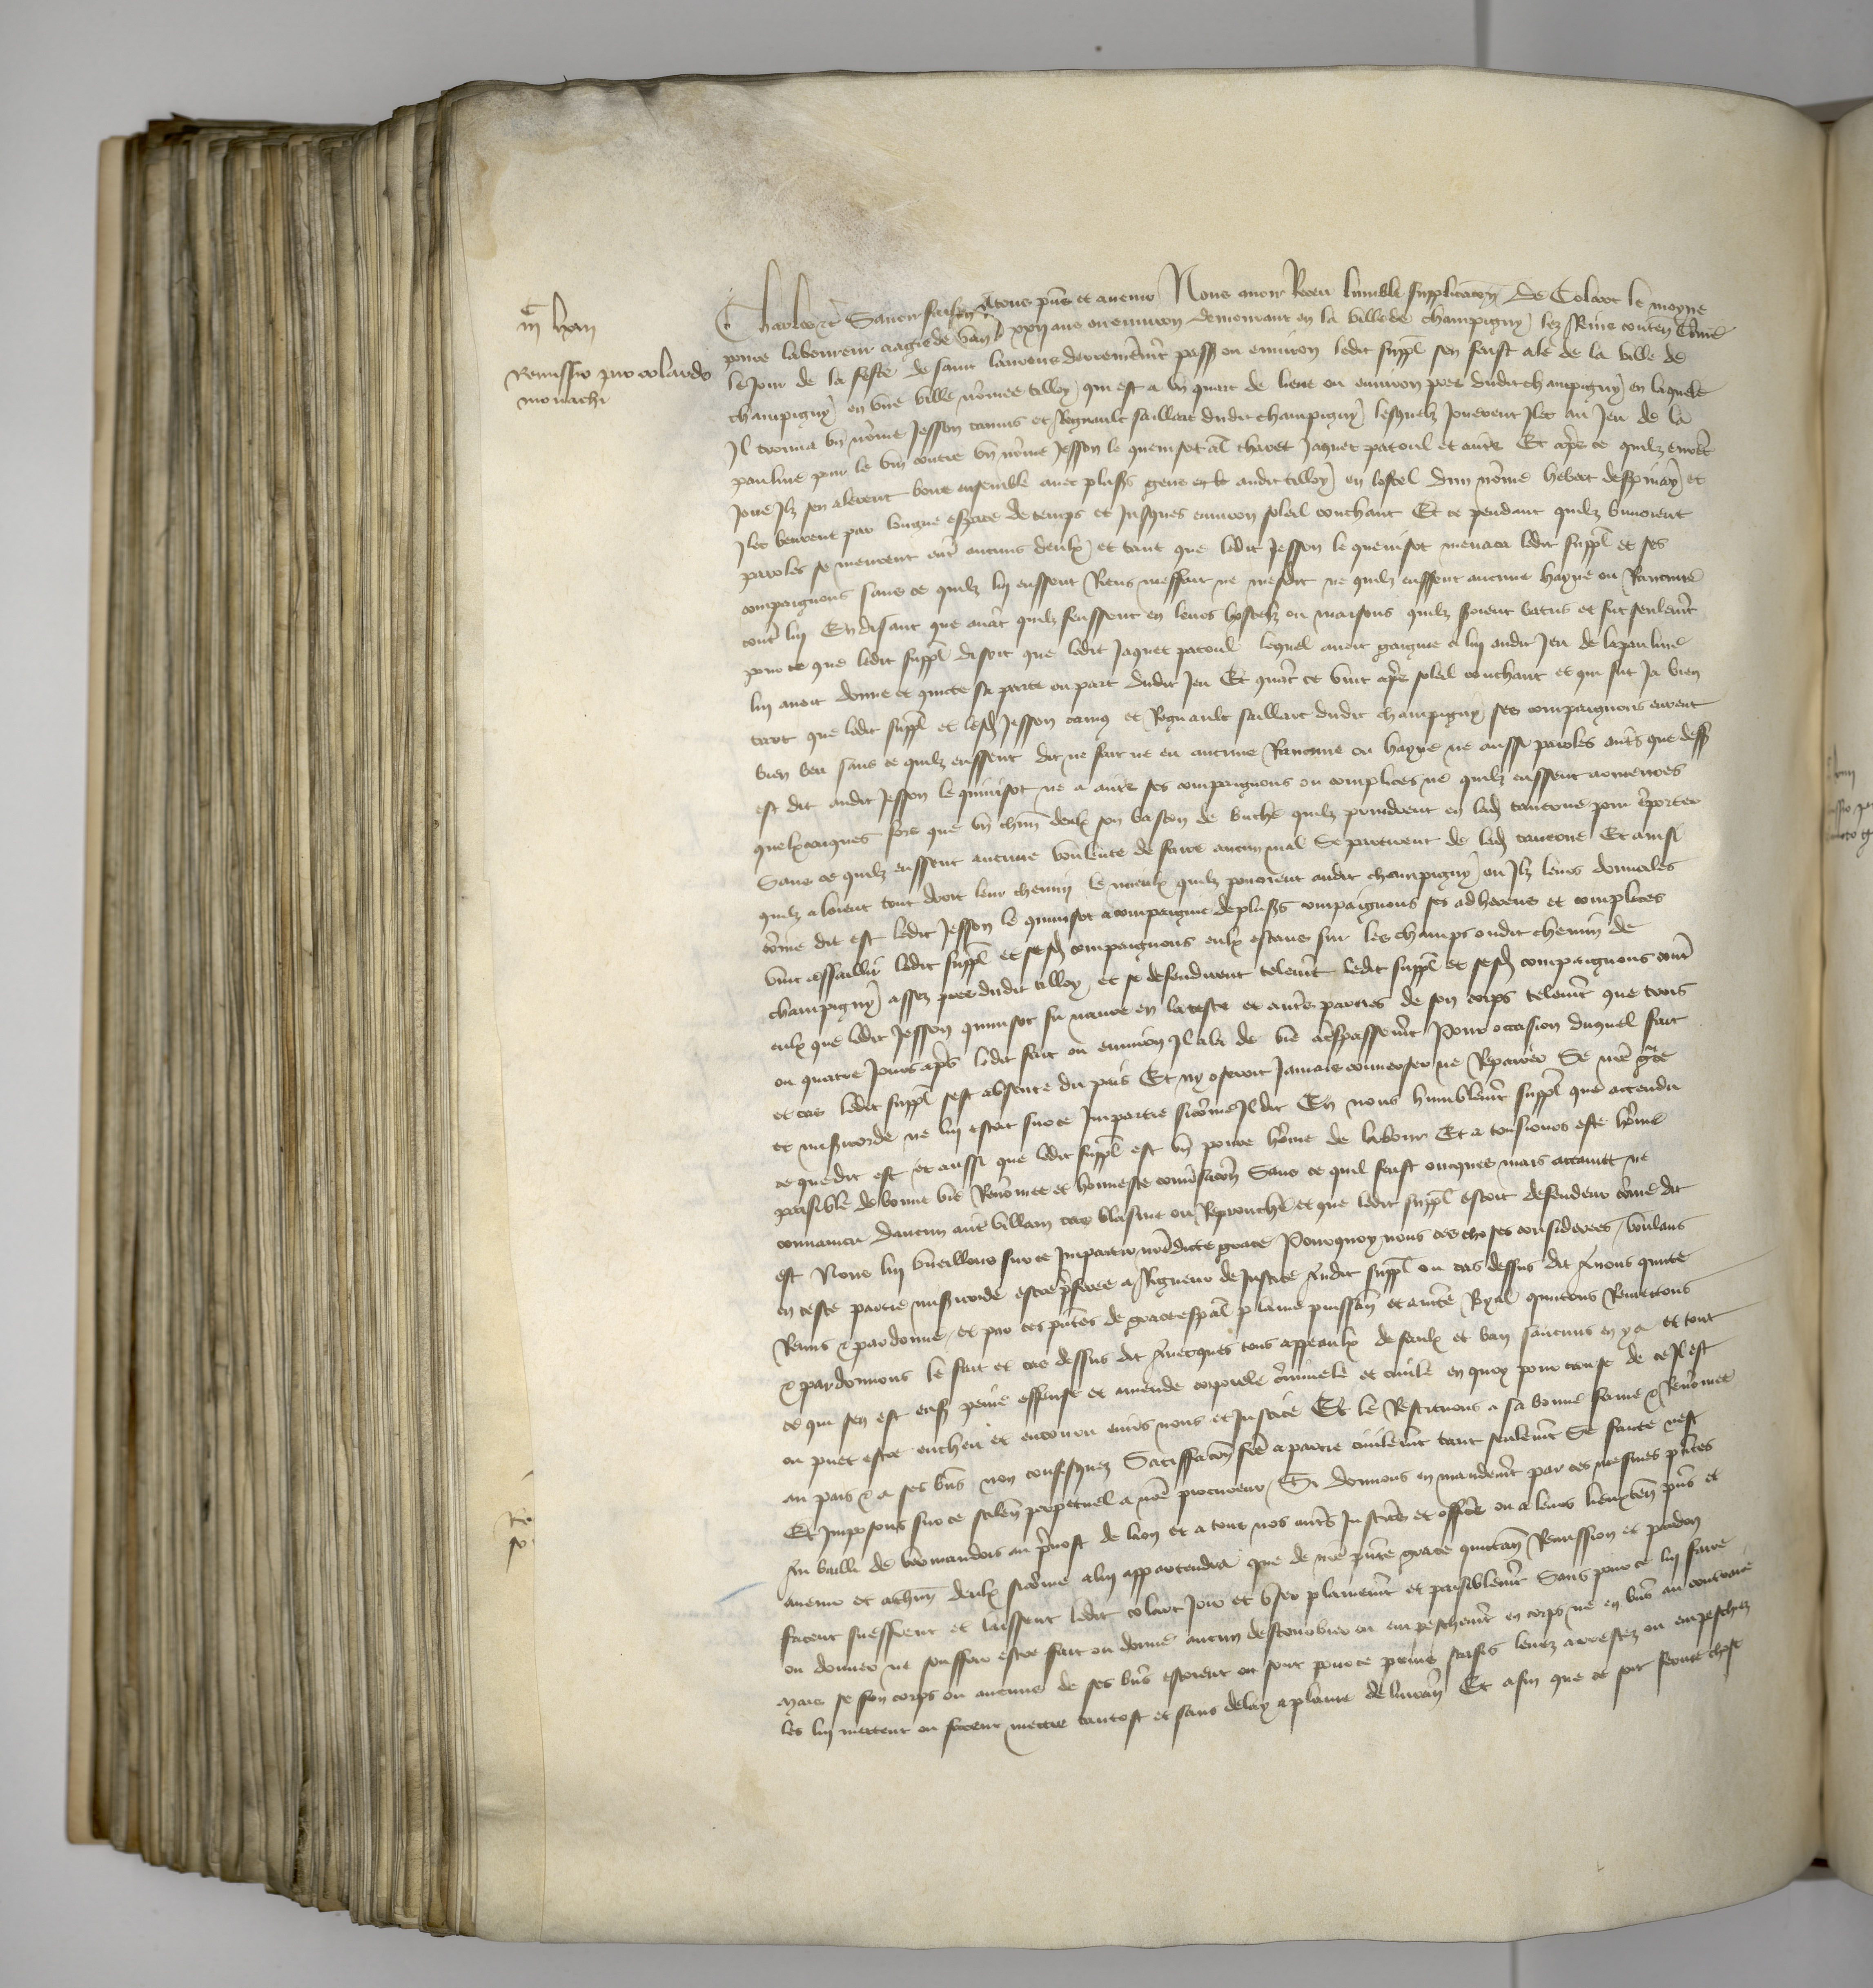 iii^c han
Remissio pro colardo
monachi
Charles etc. Savoir faisons A tous pñs et avenir Nous avoir Receu lumble supplicacion De Colart le moyne
povre laboureur aagie de vint & xxii ans ou environ demourant en la ville de champigny lez Reins conten Comme
le Jour de la feste de saint laurens derrenierement passe ou environ ledit suppl sen feust ale de la ville de
champigny en une ville nomee tilloy qui est a un quart de lieue ou environ pres dudit champigny en laquele
Il trouva un nome Jesson camus et Regnault saillart dudit champigny lesquelz Jouerent Ilec au Jeu de la
paulme pour le vin contre un nome Jesson le quemsot Jaquet patoul et autres Et apres ce quilz eurent
Joue Ilz sen alerent boire ensemble avec plusrs gens audit tilloy en lostel dun nome hebert despinay et
Ilec beurent par longue espace de temps et Jusques environ soleil couchant Et ce pendant quilz buvoient
paroles se meurent entre aucuns deulx et tant que ledit Jesson le quemsot menaca ledit suppl et ses
compaignons sans ce quilz lui eussent Riens meffait ne mesdit ne quilz eussent aucune hayne ou Rancune
contre lui En disant que avant quilz feussent en leurs hostelz ou maisons quilz seroient batus et fut seulement
pour ce que ledit suppl disoit que ledit Jaquet patoul lequel avoit gaignie a lui audit Jeu de la paulme
lui avoit donne et quicte sa perte ou part dudit Jeu Et quant ce vint apres soleil couchant et qui fut Ja bien
tart que ledit suppl et lesd Jesson camus et Regnault saillart dudit champigny ses compaignons eurent
bien beu sans ce quilz eussent dit ne fait ne eu aucune Rancune ou hayne ne aussi paroles autres que dess
est dit audit Jesson le quemsot ne a autres ses compaignons ou complices ne quilz eussent armeures
quelxconques fors que un chun deulx son baston de buche quilz prindrent en lad taverne pour emporter
Sans ce quilz eussent aucune voulente de faire aucun mal Se partirent de lad taverne Et ainsi
quilz aloient tout droit leur chemin le mieulx quilz povoient audit champigny ou Ilz leurs domiciles
come dit est ledit Jesson le quemsot acompaignie de plusrs compaignons ses adherens et complices
vint assaillir ledit suppl et sesd compaignons eulx estans sur les champs oudit chemin de
champigny assez pres dudit tilloy et se defendirent telement ledit suppl et sesd compaignons contre
eulx que ledit Jesson quemsot fu navre en la teste et autres parties de son corps telement que trois
ou quatre Jours apres ledit fait ou environ Il ala de vie a trespassement Pour occasion duquel fait
et cas ledit suppl sest absente du pais Et ny oseroit Jamais converser ne Reparier Se nre grace
et misericorde ne lui estoit sur ce Impartie sicomme Il dit En nous humblement suppl que attendu
ce que dit est et aussi que ledit suppl est un povre home de labour Et a tousiours este home
paisible de bonne vie Renomee et honneste conversacion Sans ce quil feust oncques mais attaint ne
convaincu daucun autre villain cas blasme ou Reprouche et que ledit suppl estoit defendeur come dit
est Nous lui vueillons sur ce Impartir nredicte grace Pourquoy nous ces choses considerees voulans
en ceste partie misericorde estre preferee a Rigueur de Justice Audit suppl ou cas dessus dit Avons quicte
Remis & pardonne et par ces pntes de grace especial plaine puissance et auctorite Royal quictons Remettons
& pardonnons le fait et cas dessus dit Avecques tous appeaulx de seulx et ban saucuns en y a et tout
ce qui sen est ensuy peine offense et amende corporele criminele et civile en quoy pour cause de ce Il est
ou puet estre encheu et encouru envers nous et Justice Et le Restituons a sa bonne fame & Renomee
au pais & a ses biens non confisquez Satisfaction fee a partie civilement tant seulement Se faicte nest
Et Imposons sur ce silence perpetuel a nre procureur Si donnons en mandement par ces mesmes pntes
Au bailli de vermandois au prevost de laon et a tout nos autres Justiciers et officiers ou a leurs lieuxtens pñs et
avenir et a chun deulx sicomme a lui appartendra que de nre pnte grace quictance Remission et pardon
facent sueffrent et laissent ledit colart Joir et user plainement et paisiblement Sans pour ce lui faire
ou donner ne souffrir estre fait ou donne aucun destourbier ou empeschement en corps ne en biens au contraire
Mais se son corps ou aucuns de ses biens estoient ou sont pour ce prins saisis levez arrestez ou empeschez
les lui mettent ou facent mettre tantost et sans delay a plaine delivrance Et afin que ce soit ferme chose